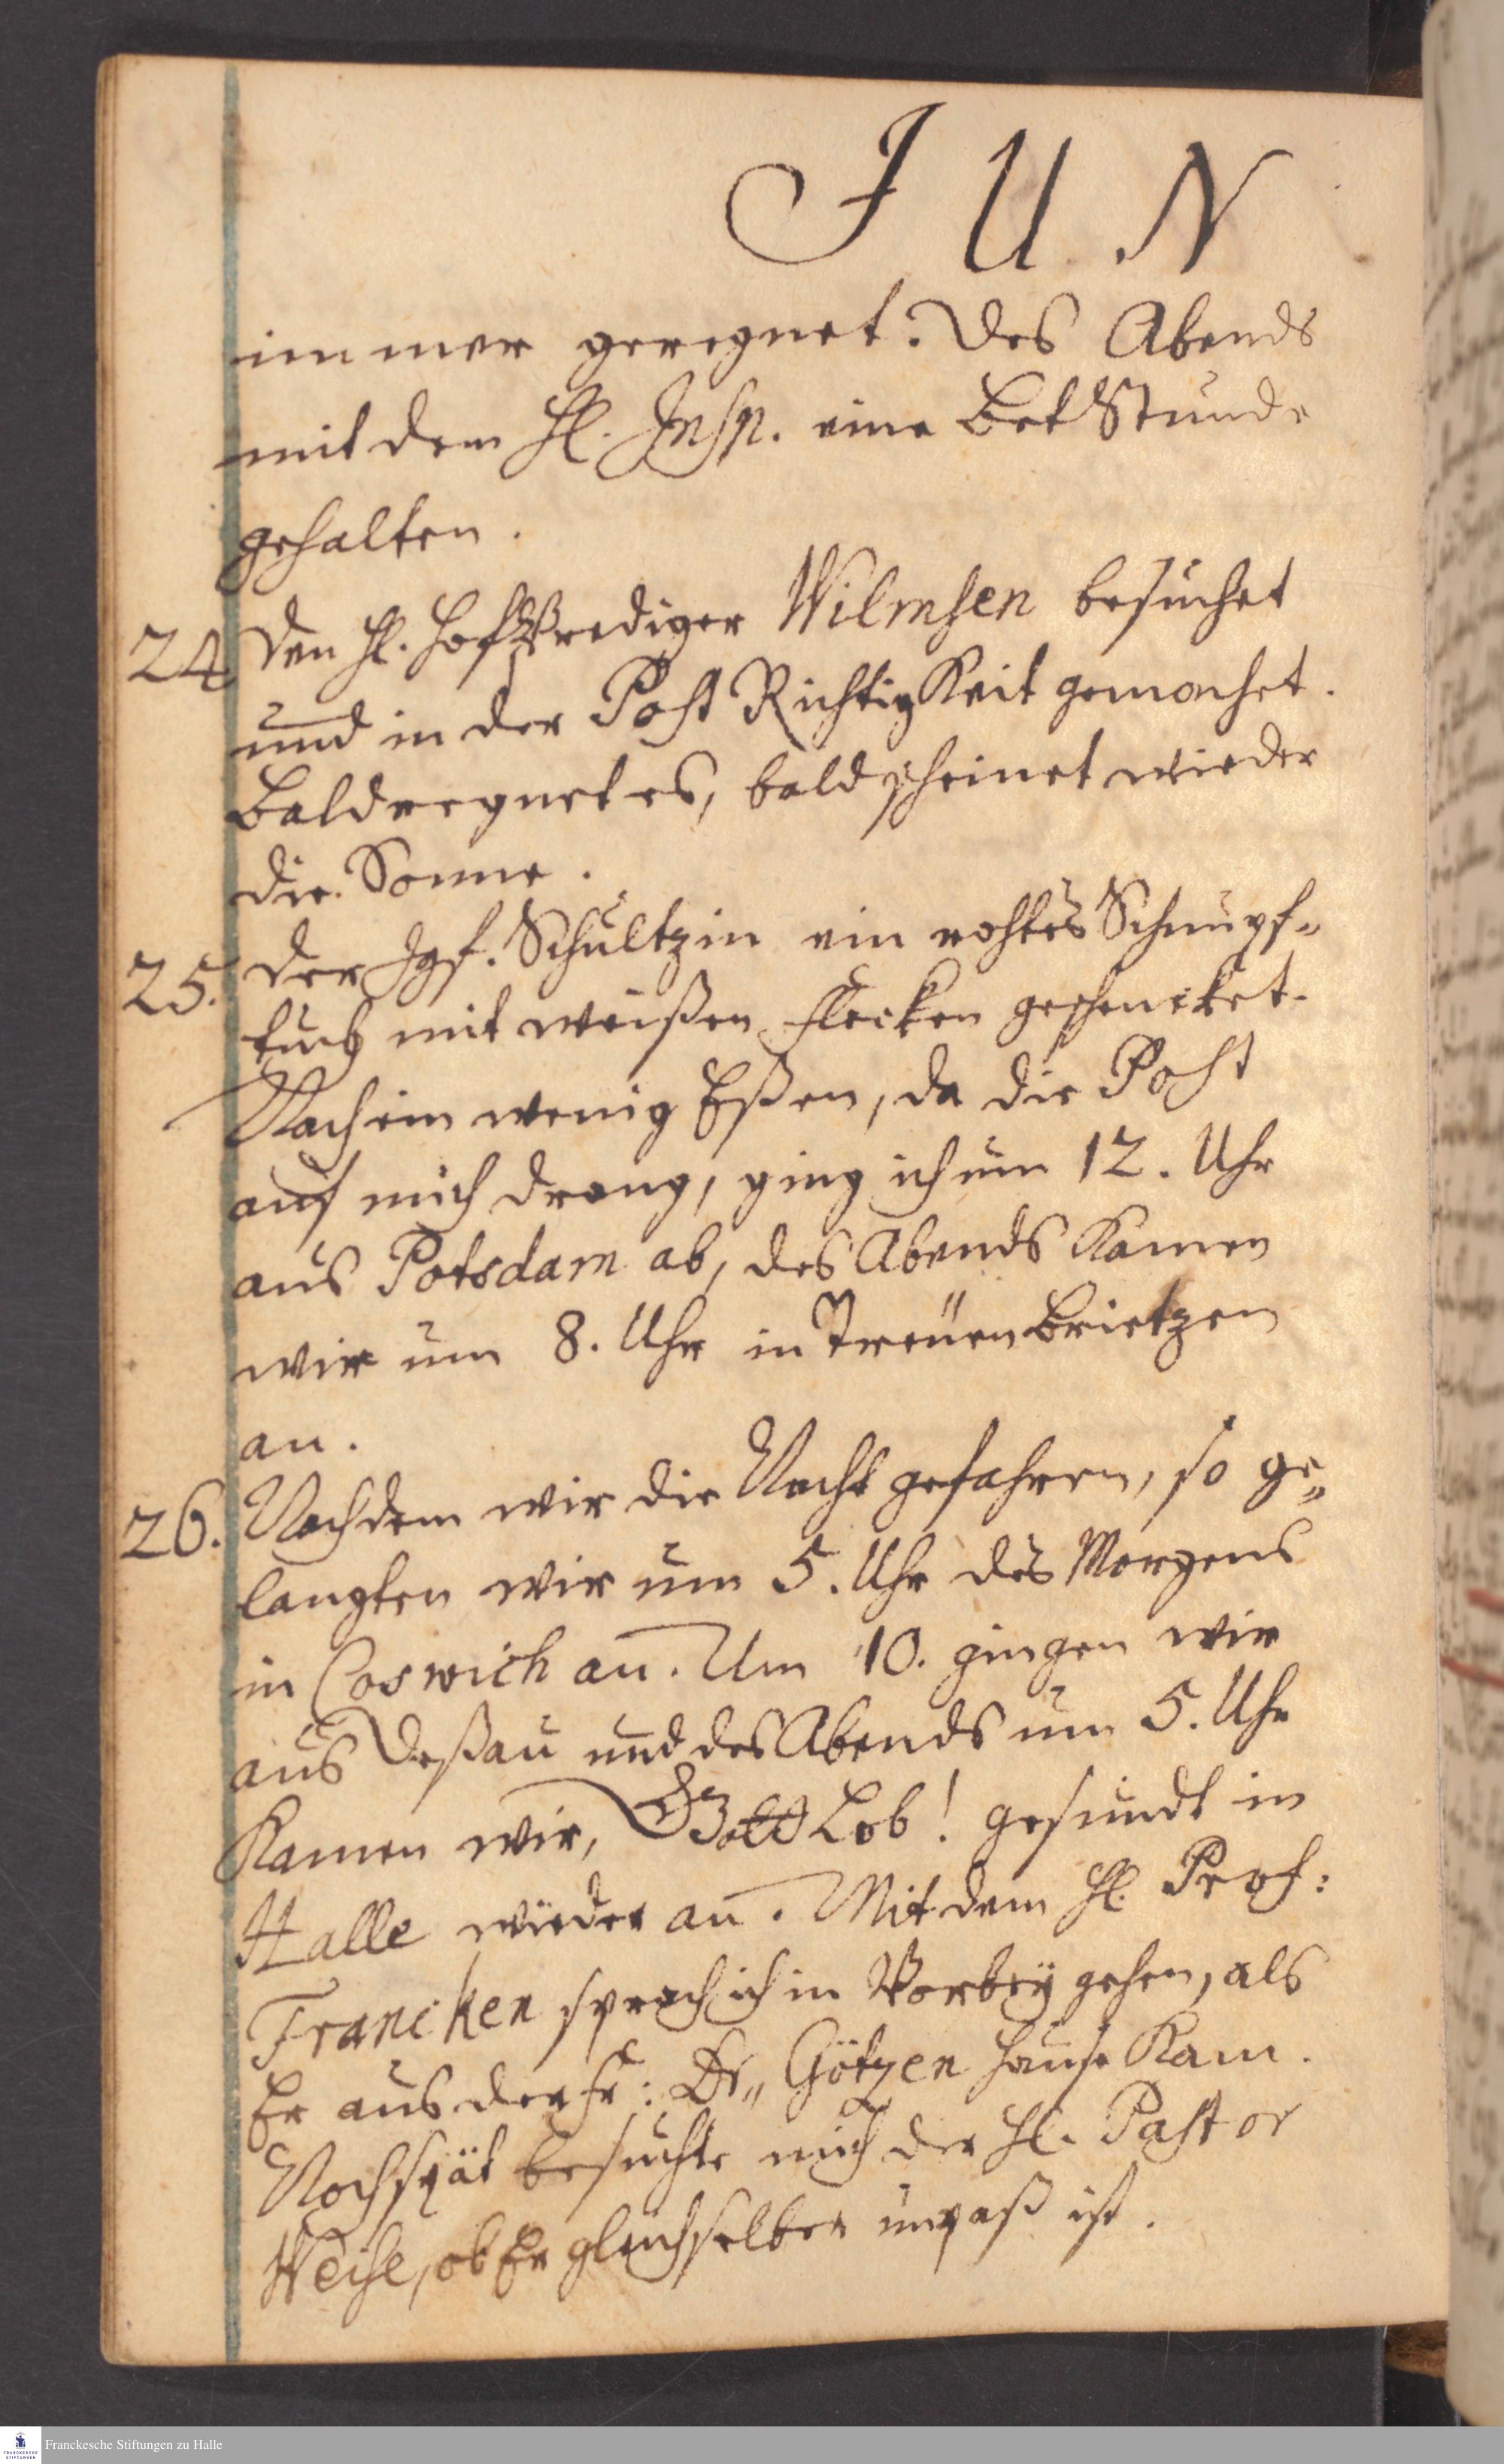 J U N
immer geregnet. Des Abends
mit dem H. Insp. eine BetStunde
gehalten.
24. Den H. HofPrediger Wilmsen besuchet
und in der Post RichtigKeit gemachet.
Bald regnet es, bald scheinet wieder
die Sonne.
25. Der Jgf. Schultzin ein rohtes Schnupf-
tuch mit weißen Flecken geschencket.
Nach ein wenig Eßen, da die Post
auf mich drang, ging ich um 12. Uhr
aus Potsdam ab, des Abends Kamen
wir um 8. Uhr in TreuenBrietzen
an.
26. Nachdem wir die Nacht gefahren, so ge-
langten wir um 5. Uhr des Morgens
in Coswich an. Um 10. gingen wir
aus Deßau und des Abends um 5. Uhr
Kamen wir, Gott Lob! gesundt in
Halle wieder an. Mit dem H. Prof:
Francken sprach ich in Vorbey gehen, als
Er aus der Fr: Dr. Götzen Hause Kam.
Noch spät besuchte mich der H. Pastor
Weise, ob Er gleich selber unpaß ist.
FRANCKESCHE STIFTUNGEN
Franckesche Stiftungen zu Halle